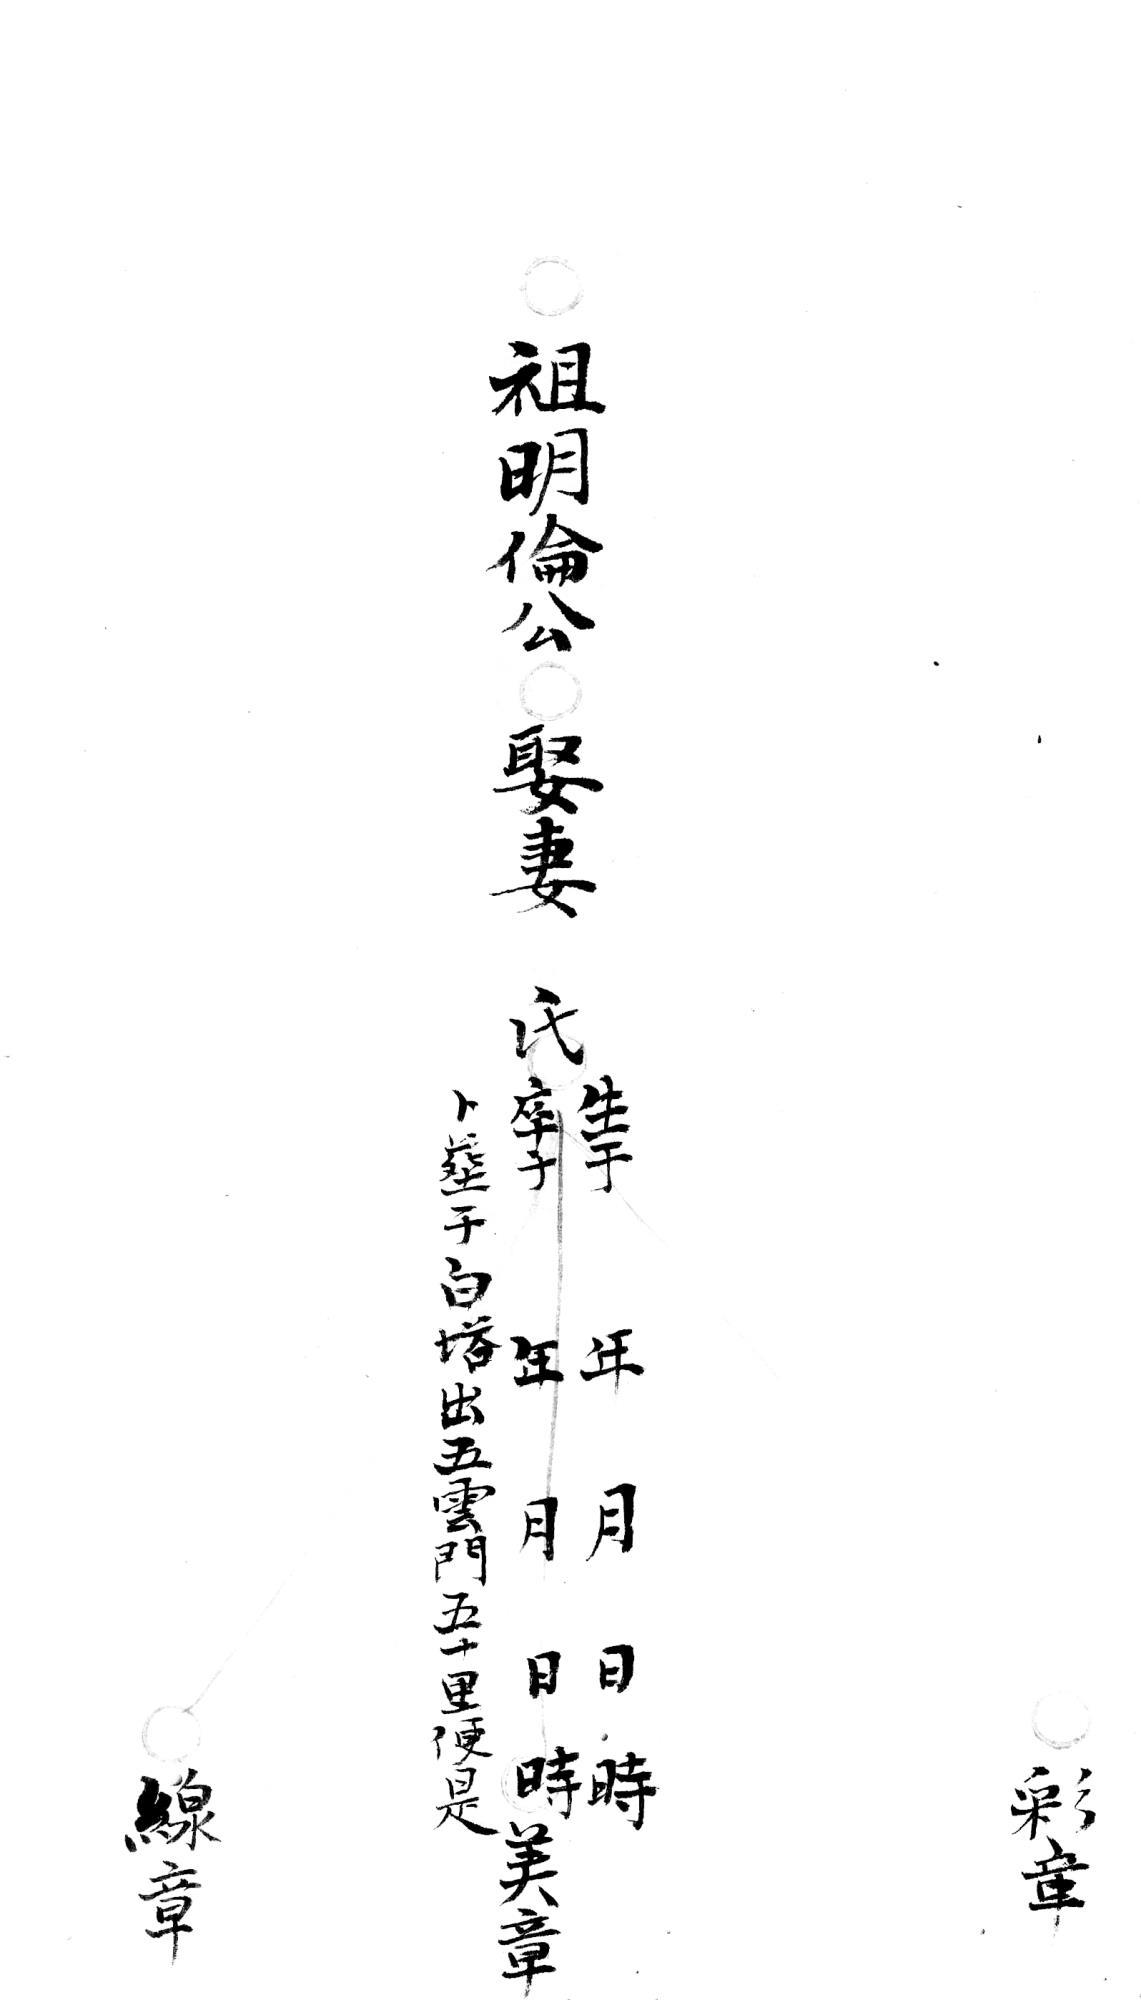 祖明倫公
娶妻 氏
生于 年 月 日 時
卒于 年 月 日 時
卜塟于白塔出五雲門五十里便是
彩章
美章
線章